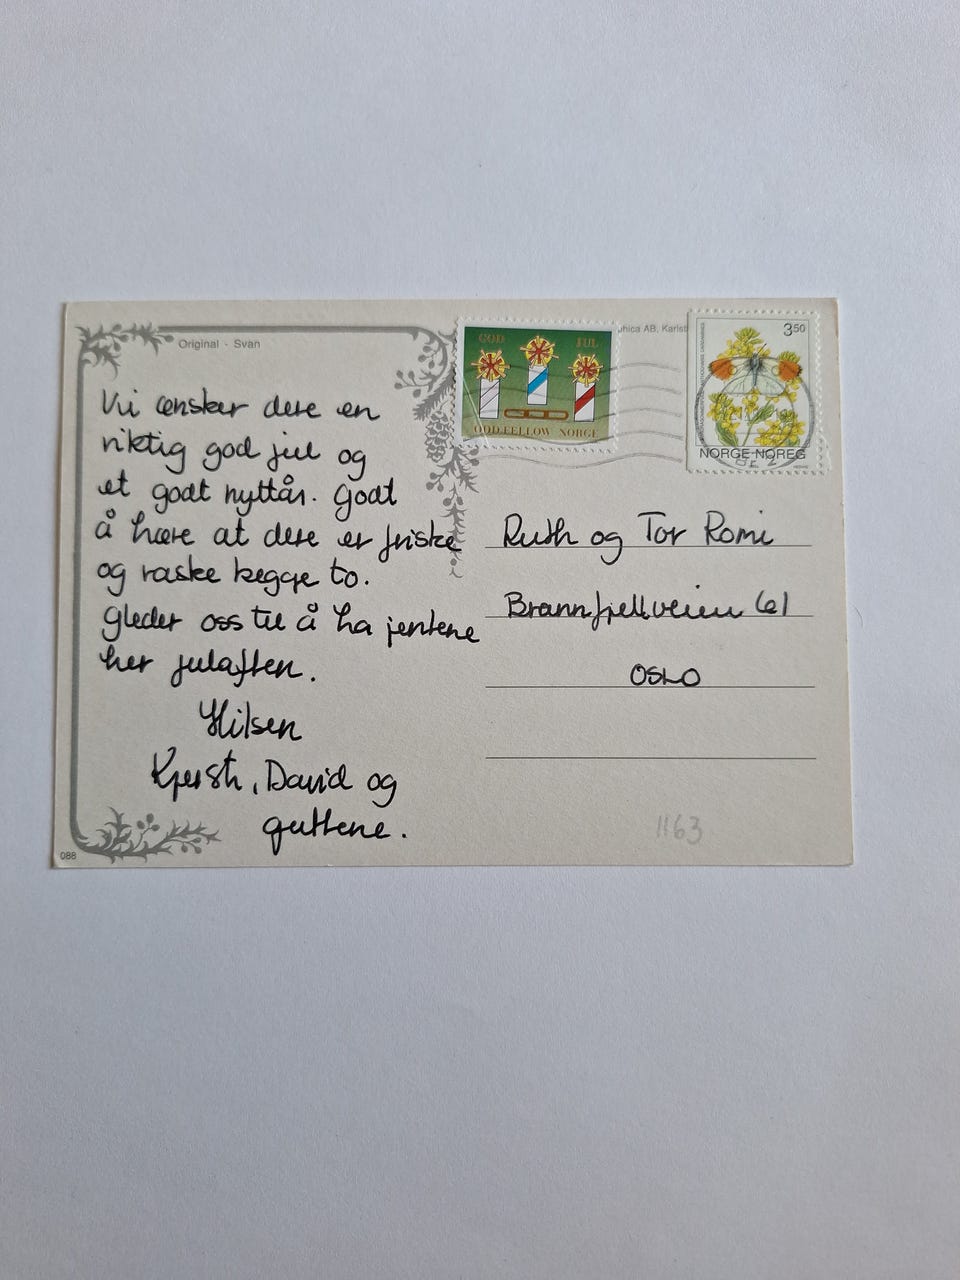 Original - Svan
Vi ønsker dere en
riktig god jul og
et godt nyttår. Godt
å høre at dere er friske
og raske begge to.
Gleder oss til å ha jentene
her julaften.
Hilsen
Kjersti, David og
guttene.
088
GOD JUL
ODD FELLOW NORGE
AB, Karlst
3 50
NORGE NOREG
Ruth og Tor Romi
Brannfjellveien 61
OSLO
1163